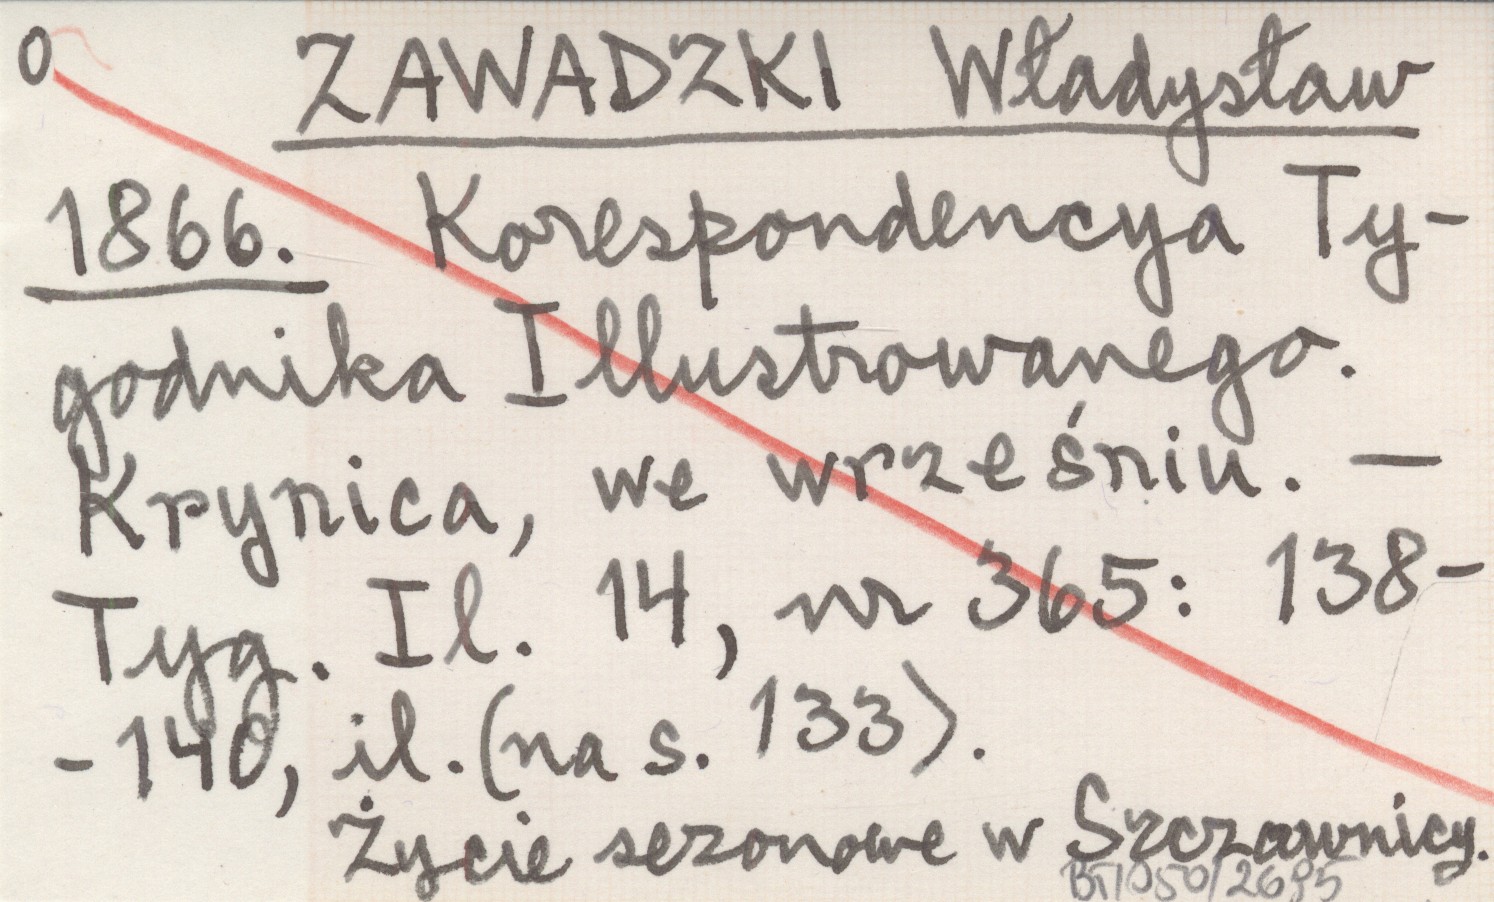 0 ZAWADZKI Władysław
1866. Korespondencya Ty-
godnika Illustrowanego.
Krynica, we wrześniu. —
Tyg. Il. 14, nr 365: 138-
-140, il. (na s. 133).
Życie sezonowe w Szczawnicy.